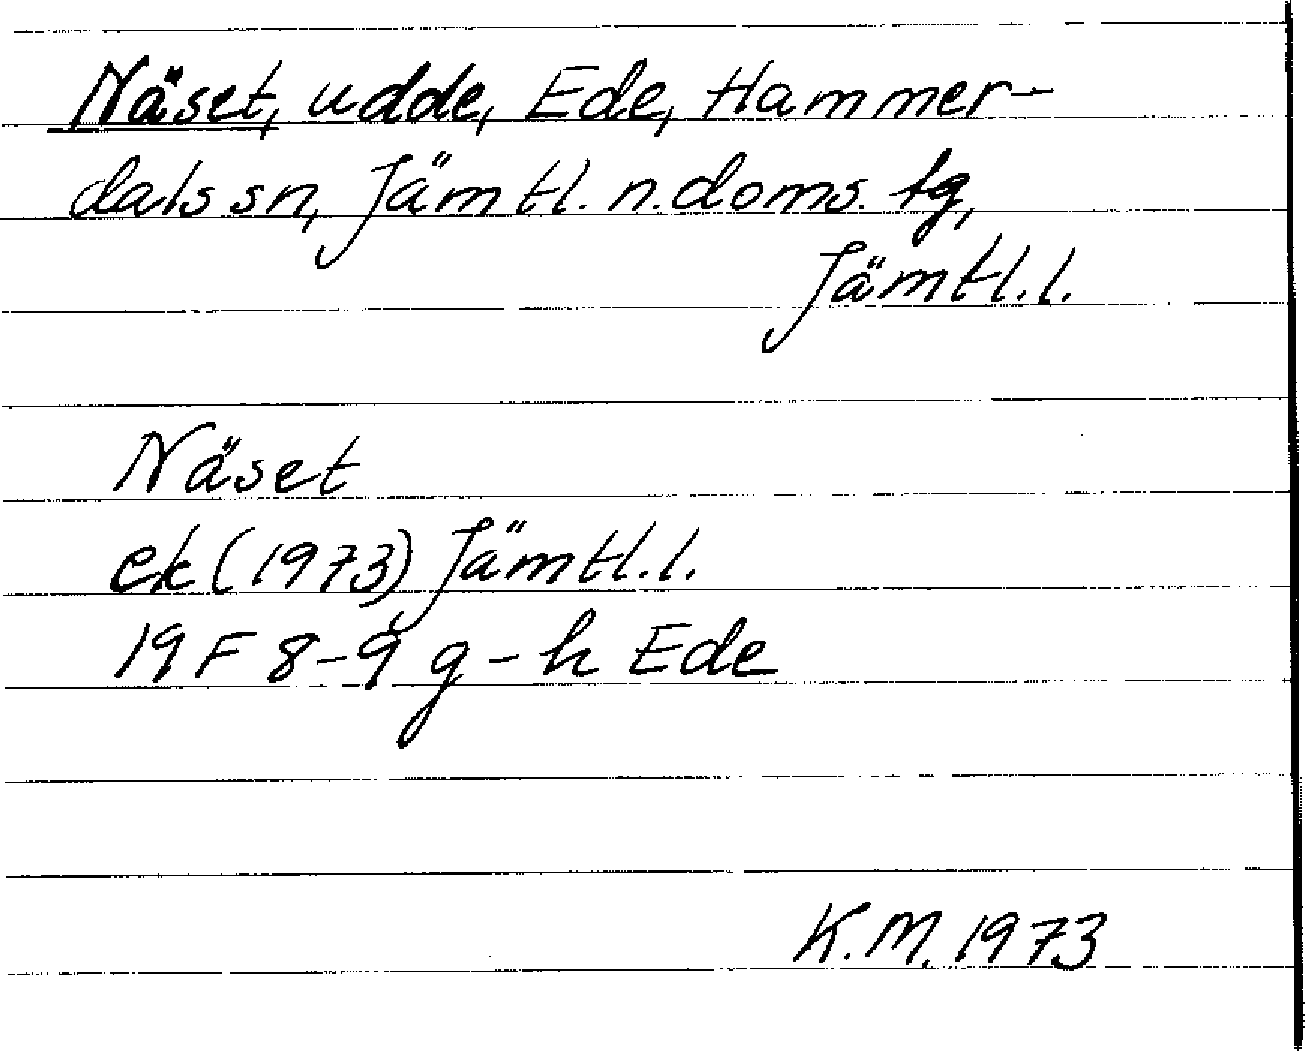 Näset, udde, Ede, Hammer-
dals sn, Jämtl. n. doms. tg,
Jämtl. l.
Näset
ek (1973) Jämtl. l.
19 F 8-9 g-h Ede
K.M. 1973